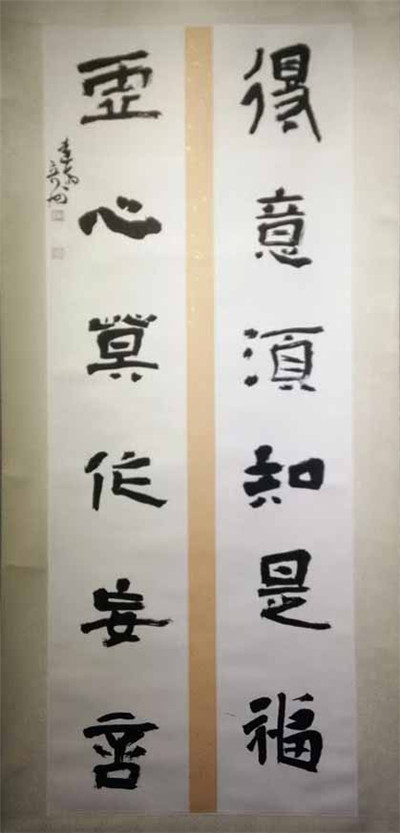 得意湏知是福
虚心莫作妄言